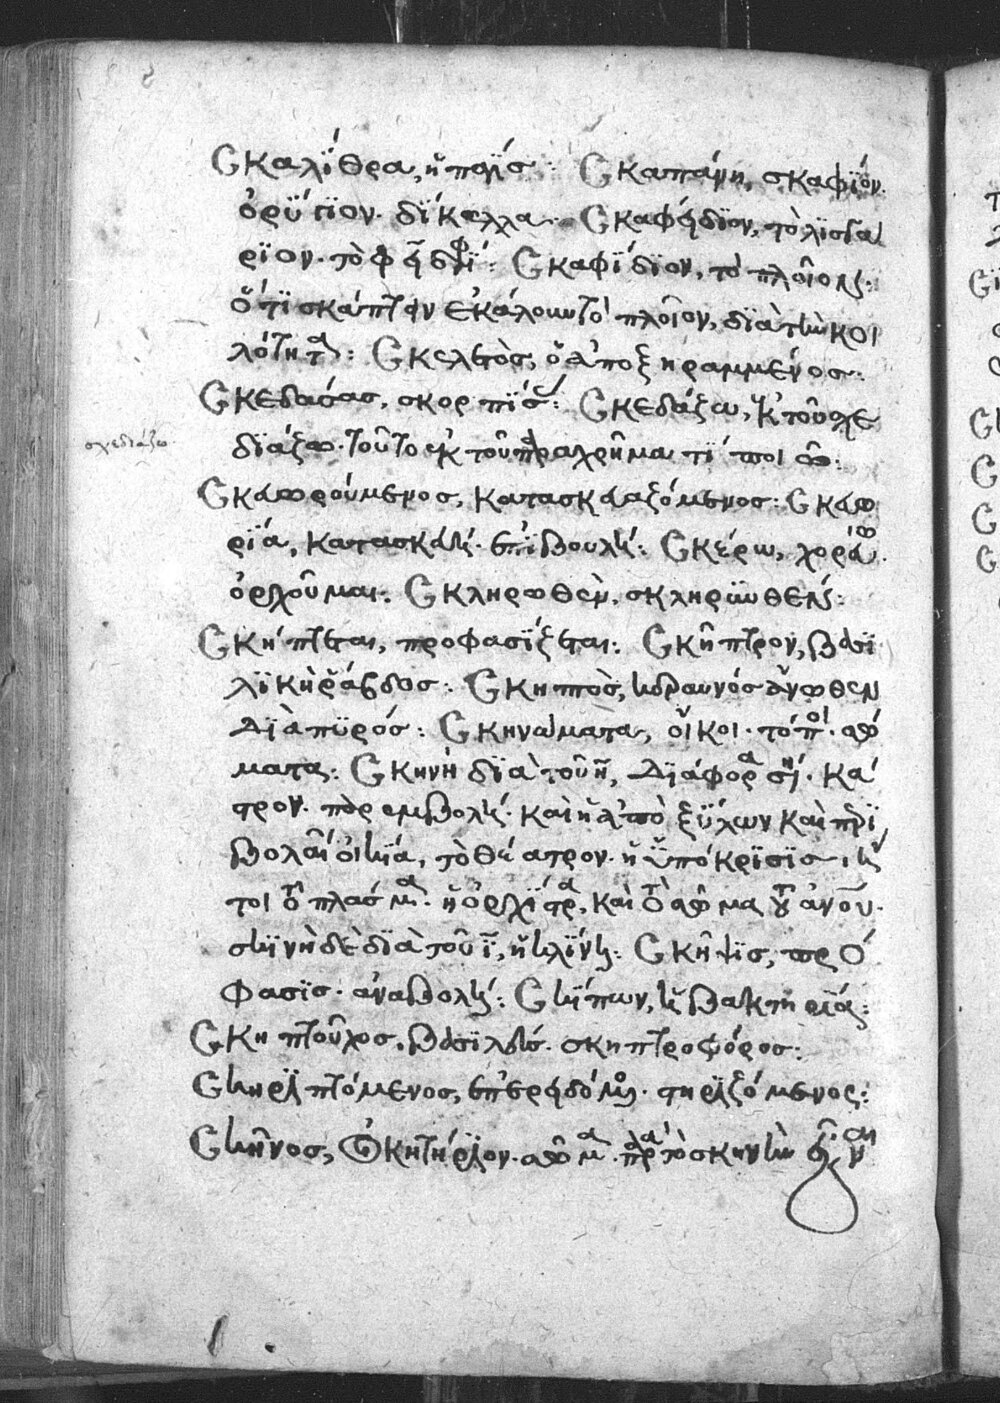 Σκαλήθρα, ἡ παγίς: Σκαπάνη, σκαφίον.
ὀρύγιον. δίκελλα. Σκαφίδιον, τὸ λισγά
ριον. τὸ Σκαφίδιον, τὸ πλοῖον
ὅτι σκάπτειν ἐκάλουν τὸ πλοῖον, διὰ τὴν κοι
λότητα: Σκελετὸς, ὁ ἀποξηραμμένος:
Σκεδάσας, σκορπίσας: Σκεδάζω, ἐκ τοῦ σχε
διάζω. τοῦτο ἐκ τοῦ παραχρῆμα τι ποιῶ:
σχεδιάζω
Σκαιωρούμενος, κατασκευαζόμενος: Σκαιω
ρία, κατασκευή. ἐπιβουλή: Σκέρω, χορεύω.
ὀρχοῦμαι: Σκληρωθεὶς, σκληρυνθείς:
Σκήπτεται, προφασίζεται: Σκῆπτρον, βασι
λικὴ ῥάβδος: Σκηπτὸς, κεραυνὸς ἄνωθεν
διάπυρος: Σκηνώματα, οἶκοι. τόποι. σώ
ματα: Σκηνὴ διὰ τοῦ η, διάφορα σημαίνει. κά
στρον. παρεμβολή. καὶ ἡ ἀπὸ ξύλων καὶ περι
βολαίων οἰκία, τὸ θέατρον. ἡ ὑπόκρισις, ἤ
τοι τὸ πλάσμα. ἡ ὀρχίστρα, καὶ τὸ σῶμα τοῦ ἀνου.
σκηνὴ δὲ διὰ τοῦ ι, ἡ κλίνη: Σκῆψις, πρό
φασις. ἀναβολή: Σκήπων, ἡ βακτηρία:
Σκηπτοῦχος, βασιλεύς. σκηπτροφόρος:
Σκηριπτόμενος, ἐπερειδόμενος. στηριζόμενος:
Σκῆνος, οἰκητήριον. σῶμα. παρὰ τὸ σκηνὴν εἶναι